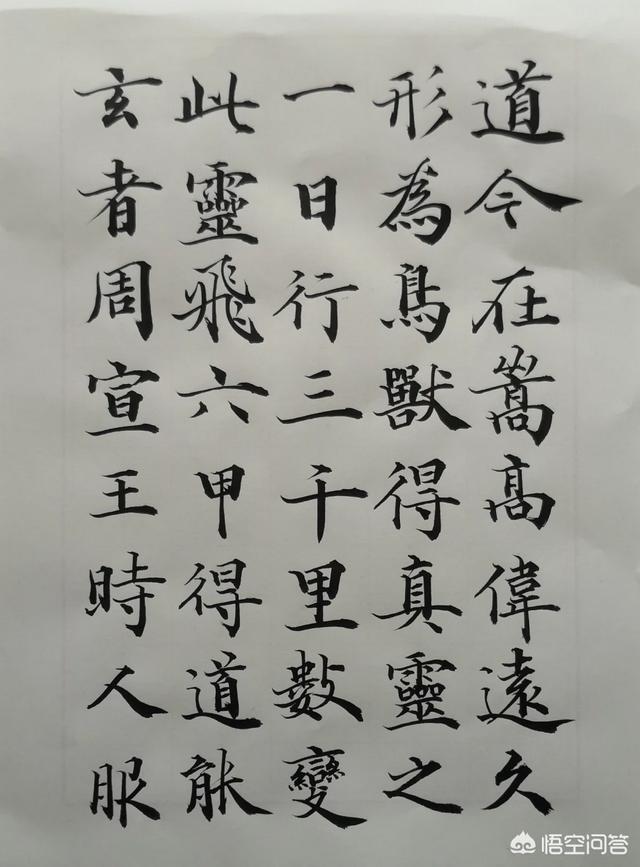 玄者周宣王時人服
此靈飛六甲得道能
一日行三千里數變
形為鳥獸得真靈之
道今在嵩高偉遠久
悟空问答